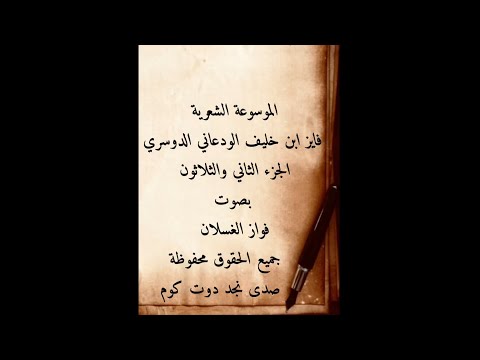 الموسوعة الشعرية
فايز ابن خليف الودعاني الدوسري
الجزء الثاني والثلاثون
بصوت
فواز الغسلان
جميع الحقوق محفوظة
صدى نجد دوت كوم